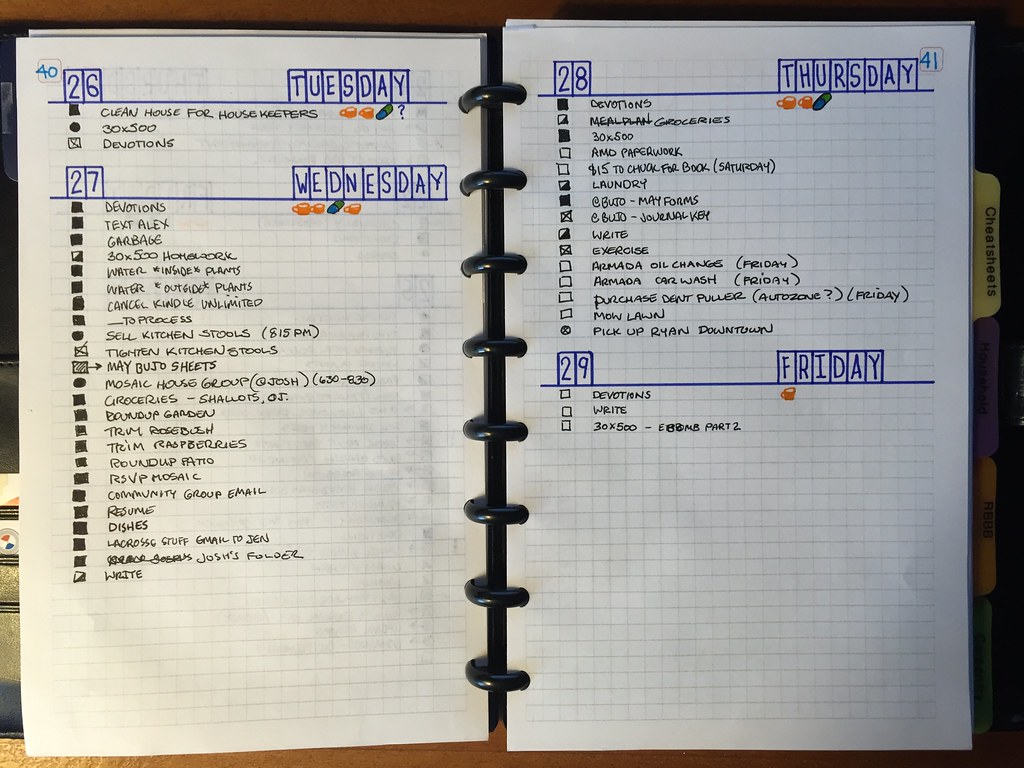 40
26 TUESDAY
CLEAN HOUSE FOR HOUSEKEEPERS ?
30X500
DEVOTIONS
27 WEDNESDAY
DEVOTIONS
TEXT ALEX
GARBAGE
30X500 HOMEWORK
WATER *INSIDE* PLANTS
WATER *OUTSIDE* PLANTS
CANCEL KINDLE UNLIMITED
__TO PROCESS
SELL KITCHEN STOOLS (815PM)
TIGHTEN KITCHEN STOOLS
MAY BUJO SHEETS
MOSAIC HOUSE GROUP (@JOSH) (630-830)
GROCERIES - SHALLOTS, OJ.
ROUNDUP GARDEN
TRIM ROSEBUSH
TRIM RASPBERRIES
ROUNDUP PATIO
RSVP MOSAIC
COMMUNITY GROUP EMAIL
RESUME
DISHES
LACROSSE STUFF EMAIL TO JEN
JOSH'S FOLDER
WRITE
41
28 THURSDAY
DEVOTIONS
MEALPLAN GROCERIES
30X500
AMD PAPERWORK
$15 TO CHUCK FOR BOOK (SATURDAY)
LAUNDRY
@BUJO - MAY FORMS
@BUJO - JOURNAL KEY
WRITE
EXERCISE
ARMADA OIL CHANGE (FRIDAY)
ARMADA CAR WASH (FRIDAY)
PURCHASE DENT PULLER (AUTOZONE?) (FRIDAY)
MOW LAWN
PICK UP RYAN DOWNTOWN
29 FRIDAY
DEVOTIONS
WRITE
30X500 - EBOMB PART 2
Cheatsheets
Household
RBBB